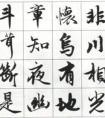 非川相光
懷烏有地
章知夜幽
斗茸斷是